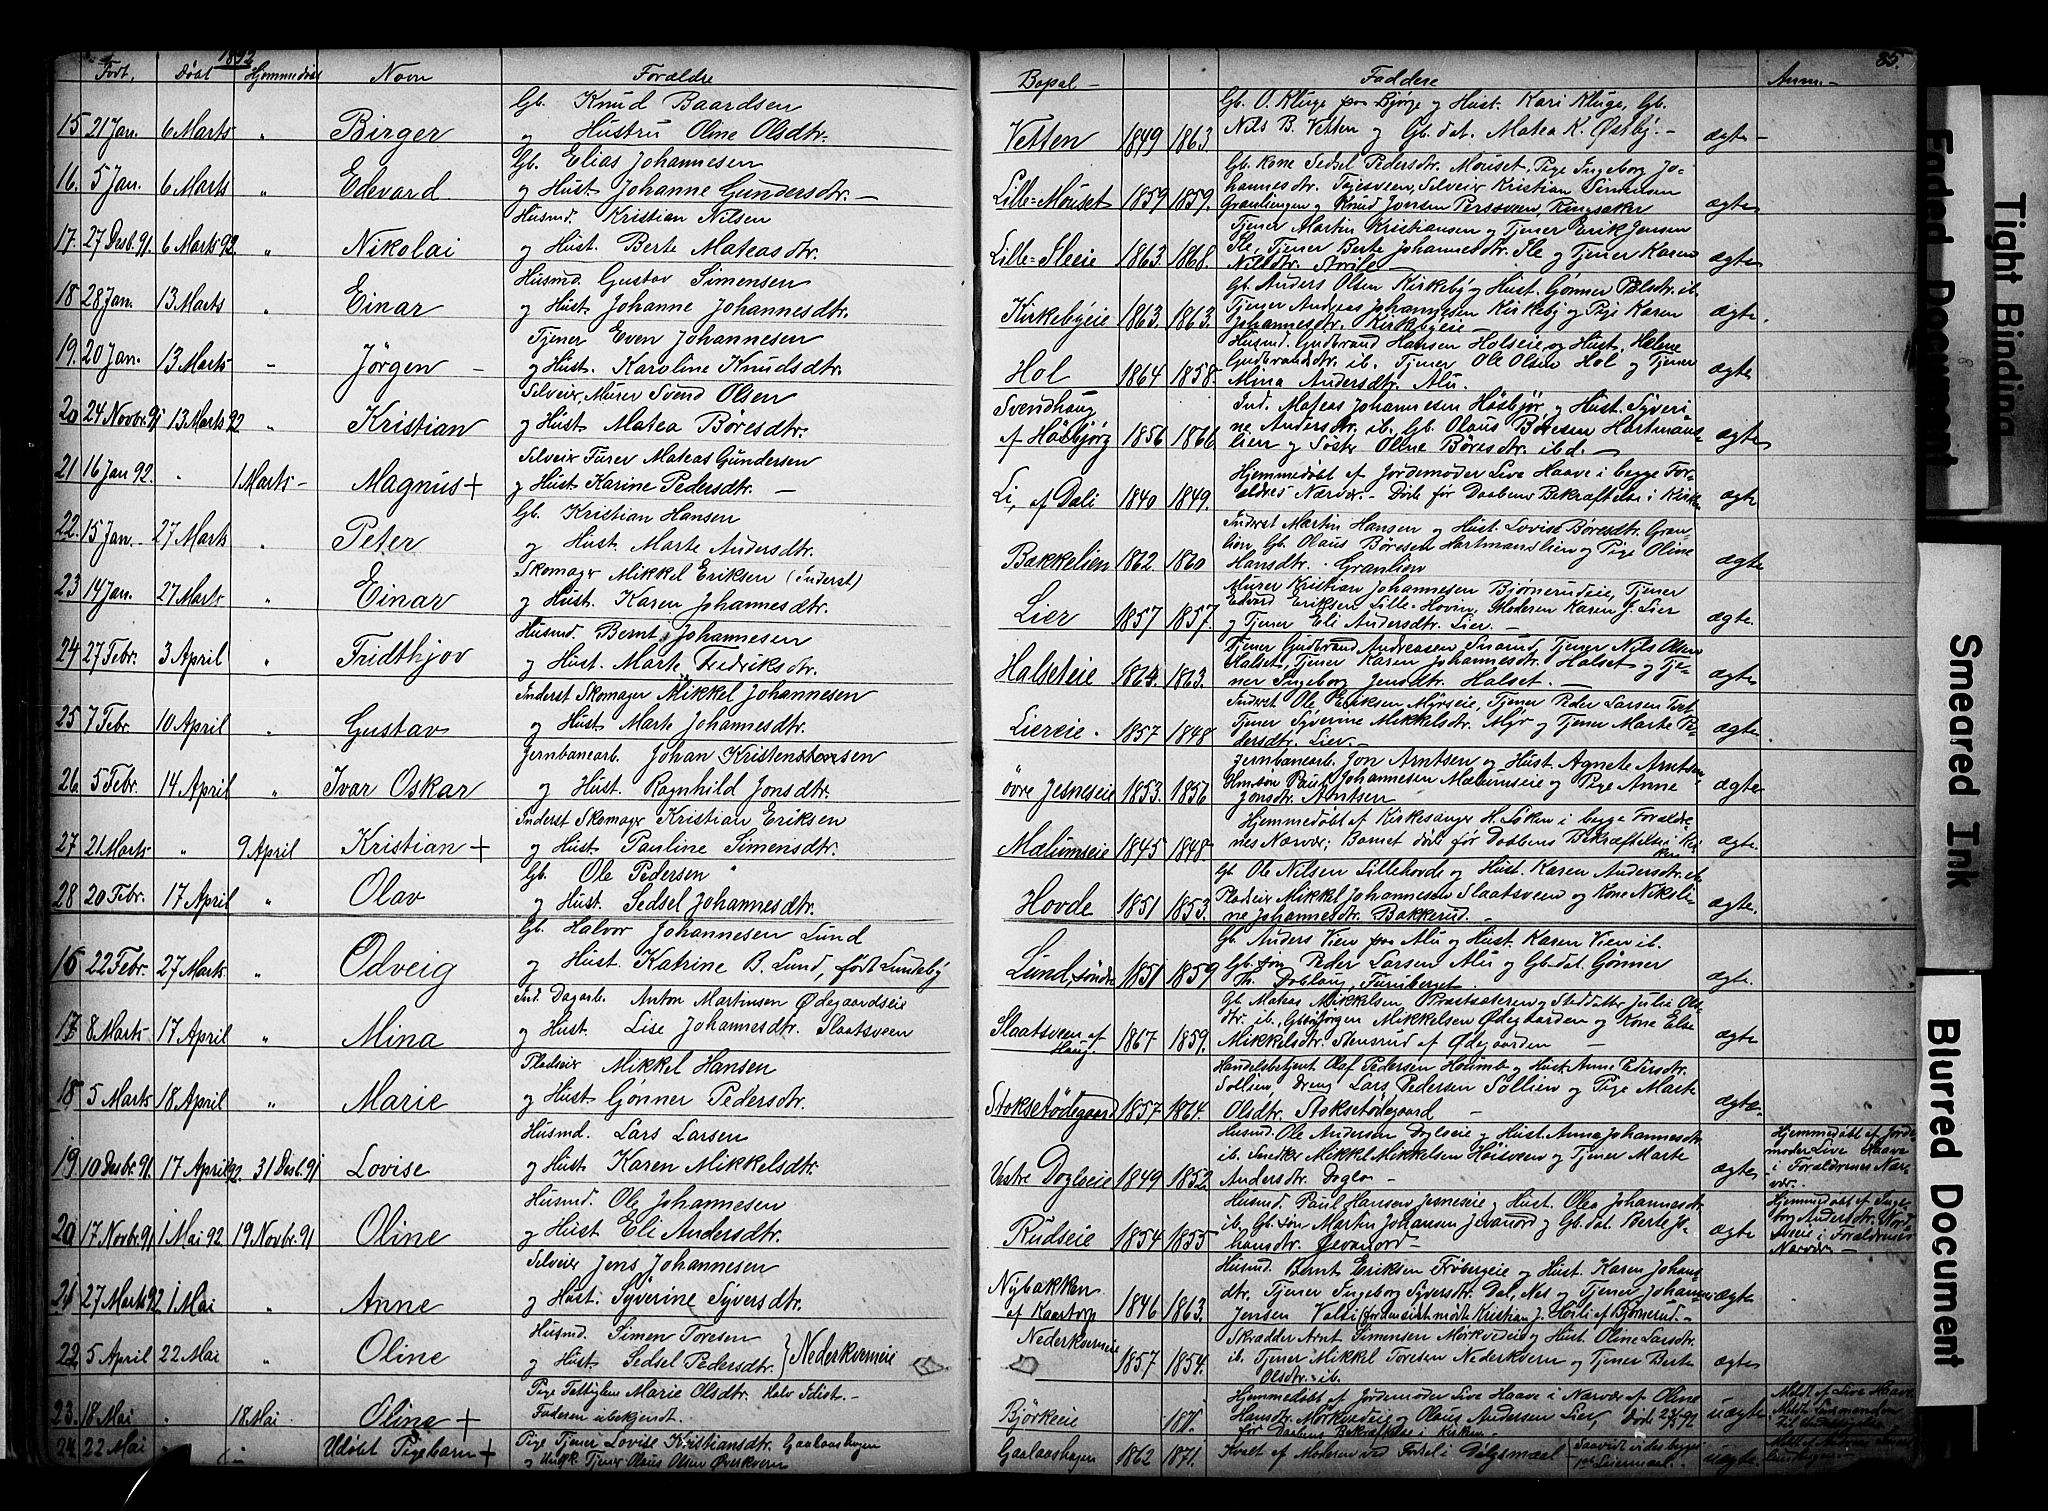 1892
Født. Døbt Hjemmedøbt Navn Forældre Bopæl - Faddere Anm. - 85.
Gb. Knud Baardsen
15 21 Jan. 6 Marts " Birger og Hustru Oline Olsdtr.
Vetten 1849 1863. ægte -
Gb. O. Kluge paa Bjørge og Hust. Kari Kluge, Gb.
Nils B. Vetten og Gb. dat. Matea K. Østbÿ. -
Gb. Elias Johannesen
16. 5 Jan. 6 Marts " Edevard og Hust. Johanne Gundersdtr. -
Lille=Mouset 1859 1859. ægte
Gb. Kone Sedsel Pedersdtr. Mouset, Pige Ingeborg Jo-
hannesdtr. Tøjesveen, Selveier Kristian Simensen
Granlien og Knud Joensen Perssveen, Ringsaker
Husmd. Kristian Nilsen
17. 27 Desb. 91 6 Marts 92. " Nikolai og Hust. Berte Mateasdtr.
Lille=Ileeie 1863. 1868. ægte
Tjener Martin Kristiansen og Tjener Erik Jensen
Ile, Tjener Berte Johannesdtr. Ile og Tjener Karen
Nilsdtr. Storile -
Husmd. Gustav Simensen
18 28 Jan. 13 Marts " Einar og Hust. Johanne Johannesdtr.
Kirkebÿeie 1863. 1863. ægte.
Gb. Anders Olsen Kirkebÿ og Hust. Gønner Pålsdtr. ib.
Tjener Andreas Johannesen Kirkebÿ og Pige Karen
Johannesdtr. Kirkebÿeie -
Tjener Even Johannesen
19. 20 Jan. 13 Marts " Jørgen - og Hust. Karoline Knudsdtr.
Hol 1864 1858. ægte
Husmd. Gudbrand Hansen Holseie og Hust. Helene
Gudbrandsdtr. ib. Tjener Ole Olsen Hol og Tjener
Mina Andersdtr. Alu.
Selveier, Murer Svend Olsen
20 24 Novbr. 91 13 Marts 92 " Kristian og Hust. Matea Børesdtr.
Svendhaug
af Høsbjørg 1856 1866. ægte
Ind. Mateas Johannesen Høsbjør og Hust. Syveri-
ne Andersdtr. ib. Gb. Olaus Børesen Hartmans-
lien og Søster Oline Børesdtr. ibd. -
Selveier Furer Mateas Gundersen
21 16 Jan 92. " 1 Marts - Magnus + og Hust. Karine Pedersdtr. -
Li, af Dæli 1840 1849. ægte
Hjemmedøbt af Jordemoder Live Haave i begge For-
ældres Nærvær. - Døde før Daabens Bekræftelse i Kirken
Gb. Kristian Hansen
22. 15 Jan. 27 Marts " Peter og Hust. Marte Andersdtr.
Bakkelien 1862. 1860 ægte
Inderst Martin Hansen og Hust. Lovise Børesdtr. Gran-
lien, Gb. Olaus Børesen Hartmandslien og Pige Oline
Hansdtr. Granlien
Skomager Mikkel Eriksen (Inderst)
23 14 Jan. 27 Marts " Einar og Hust. Karen Johannesdtr.
Lier 1857 1857. ægte.
Murer Kristian Johannesen Bjørnerudeie, Tjener
Edvard Eriksen Lille-Hovin, Moderen Karen J. Lier
og Tjener Eli Andersdtr. Lier. -
Husmd. Bernt Johannesen
24 27 Febr. 3 April " Fridthjov og Hust. Marte Fredriksdtr.
Halseteie 1864. 1863. ægte
Tjener Gudbrand Andreasen Snarud, Tjener Nils Olsen
Halset, Tjener Karen Johannesdtr. Halset og Tje-
ner Ingeborg Jensdtr. Halset. -
Inderst Skomager Mikkel Johannesen
25 7 Febr. 10 April " Gustav og Hust. Marte Johannesdtr.
Liereie. 1857 1848 ægte
Inderst Ole Eriksen Mÿrseie, Tjener Peder Larsen
Tjener Syverine Mikkelsdtr. Myr og Tjener Marte Pe-
dersdtr. Lier. -
Jernbanearb. Johan Kristensen
26. 5 Febr. 14 April " Ivar Oskar og Hust. Ragnhild Jonsdtr.
øvre Jesneseie 1853. 1856 ægte
Jernbanearb. Jon Arntsen og Hust. Agnete Arntsen,
Paul Johannesen Mælumseie og Pige Anne
Jonsdtr. Arntsen
Inderst Skomager Kristian Eriksen
27 21 Marts " 9 April Kristian + og Hust. Pauline Simensdtr.
Mælumseie 1845 1848. ægte
Hjemmedøbt af Kirkesanger H. Løken i begge Forældre-
nes Nærvær; Barnet døde før Daabens Bekræftelse i Kir-
ken
Gb. Ole Pedersen
28 20 Febr. 17 April " Olav og Hust. Sedsel Johannesdtr.
Hovde 1851 1853. ægte.
Gb. Ole Nilsen Lillehovde og Hust. Karen Andersdtr. ib.
Pladseier Mikkel Johannesen Slaatsveen og Kone Nikoli-
ne Johannesdtr. Bakkerud. -
Gb. Halvor Johannesen Lund
16 22 Febr. 27 Marts " Odveig og Hust. Katrine B. Lund, født Lundebÿ
Lund, søndre 1851 1859 ægte.
Gb. Anders Vien paa Alu og Hust. Karen Vien ib.
Gb. søn Peder Larsen Alu og Gb. dat. Gønner
Th. Doblaug, Furuberget.
Ind. Dagarb. Anton Martinsen Ødegaardseie
17 8 Marts 17 April " Mina og Hust. Lise Johannesdtr. Slaatsveen
Slaatsveen af
Haug. 1867 1859. ægte
Gb. Mateas Mikkelsen Prestsæteren og Steddatter Julie Ols-
dtr. ib., Jørgen Mikkelsen Ødegaarden og Kone Else
Mikkelsdtr. Stensrud af Ødegaarden -
Pladseier Mikkel Hansen
18 5 Marts 18 April " Marie og Hust. Gønner Pedersdtr.
Stoksetødegaard 1857 1864. ægte.
Handelsbetjent Olaf Pedersen Houmb og Hust. Anne Pedersdtr.
Sollien, Dreng Lars Pedersen Sollien og Pige Marte
Olsdtr. Stoksetødegaard -
Husmd. Lars Larsen
19 10 Desbr. 91. 17 April 92. 31 Desb. 91 Lovise og Hust. Karen Mikkelsdtr.
Vestre Dogloeie 1849 1852. ægte
Husmd. Ole Andersen Dogloeie og Hust. Anna Johannesdtr.
ib. Snedker Mikkel Mikkelsen Høisveen og Tjener Marte
Andersdtr. Doglo -
Hjemmedøbt af Jorde-
moder Live Haave
i Forældrenes Nær-
vær. -
Husmd. Ole Johannesen
20 17 Novbr. 91 1 Mai 92 19 Novbr. 91 Oline og Hust. Eli Andersdtr.
Rudseie 1854 1855 ægte
Husmd. Paul Hansen Jesneseie og Hust. Olea Johannesdtr.
ib. Gb. søn Martin Johansen Jevanord og Gb. dat. Berte Jo-
hansdtr. Jevanord -
Hjemmedøbt af Inge-
borg Andersdtr.
i Forældrenes
Nærvær -
Selveier Jens Johannesen
21 27 Marts 92 1 Mai " Anne og Hust. Syverine Syversdtr.
Nÿbakken
af Kaartorp 1846 1863. ægte
Husmd. Bernt Eriksen Frøbergeie og Hust. Karen Johans-
dtr. Tjener Ingeborg Syversdtr. Dal, Nes og Tjener Johannes
Jensen Volli (for denne sidst mødte Kristian J. Horli af Bjørnerud. -
Husmd. Simen Toresen
22. 5 April 22 Mai " Oline og Hust. Sedsel Pedersdtr. } Nederkverneie
Nederkverneie
1857 1854. ægte
Skrædder Arnt Simensen Mørkvedeie og Hust. Oline Larsdtr.
ib. Tjener Mikkel Toresen Nederkvern og Tjener Berte
Olsdtr. ib.
Pige Fattiglem Marie Olsdtr. Halv Idiot. -
23. 18 Mai " 18 Mai Oline + Faderen ubekjendt.
Bjørkeeie uægte
Hjemmedøbt af Jordemoder Live Haave i Nærvær af Oline
Hansdtr. Mørkvedeie og Olaus Andersen Lier Døde 23/5 92
før Daabens Bekræftelse i Kirken -
Meldt af Live Haave
24. 22 Mai " " Udøbt Pigebarn + Pige Tjener Lovise Kristiansdtr. Gaalaashagen
og Ungk. Tjener Olaus Olsen Øverkvern
Gaalaashagen 1862 1871. uægte.
Kvalt af Moderen ved Fødsel i Dølgsmaal
Faded Document
Tight Binding
Smeared Ink
Blurred Document